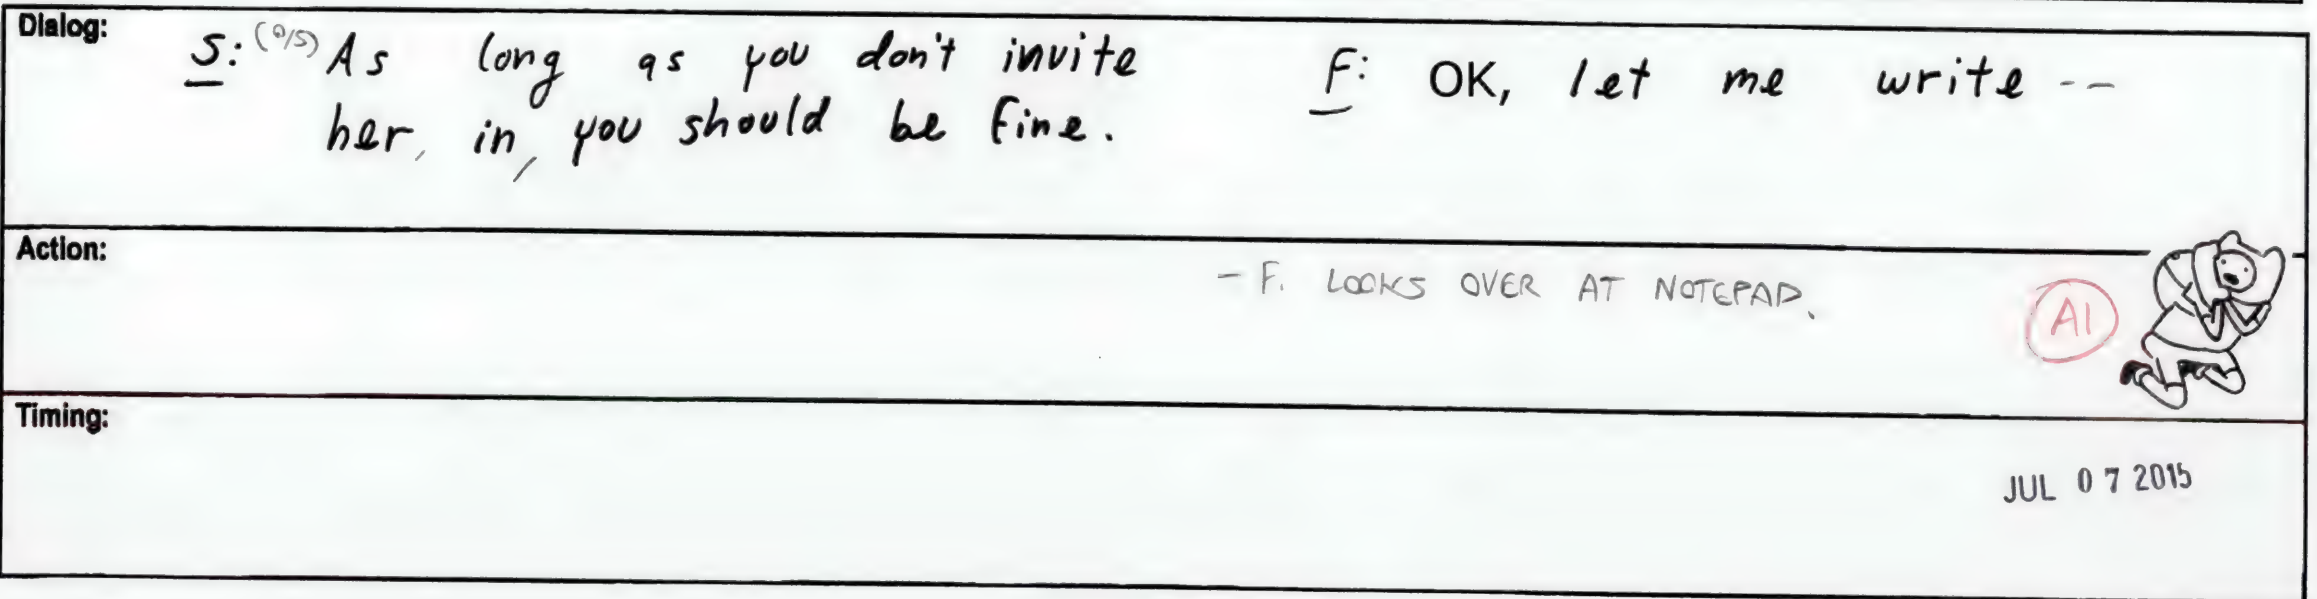 Dialog:
S: (O/S) As long as you don't invite
her, in, you should be fine.
F: OK, let me write --
Action:
- F. LOOKS OVER AT NOTEPAD.
A1
Timing:
JUL 07 2015